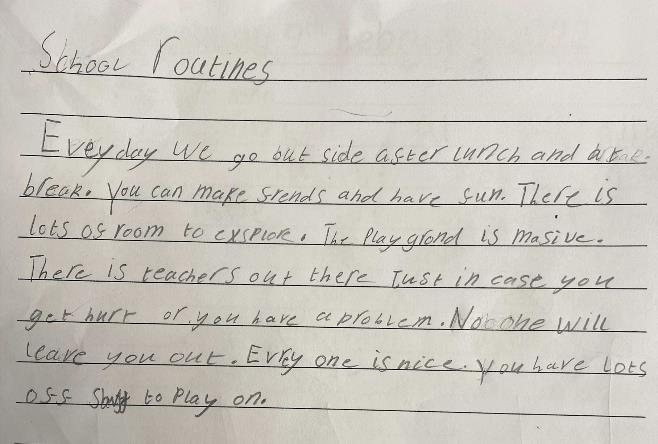 School routines
Eveyday we go out side after lunch and
break. You can make frends and have fun. There is
lots of room to exsplore. The Play grond is masive.
There is teachers out there Just in case you
get hurt or you have a problem. No one will
leave you out. Evrey one is nice. you have lots
off stuff to Play on.